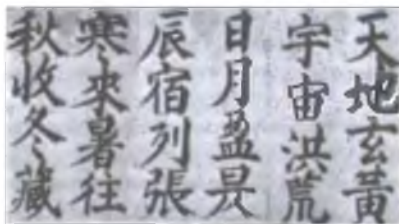 天地玄黃
宇宙洪荒
日月盈昃
辰宿列張
寒來暑往
秋收冬藏